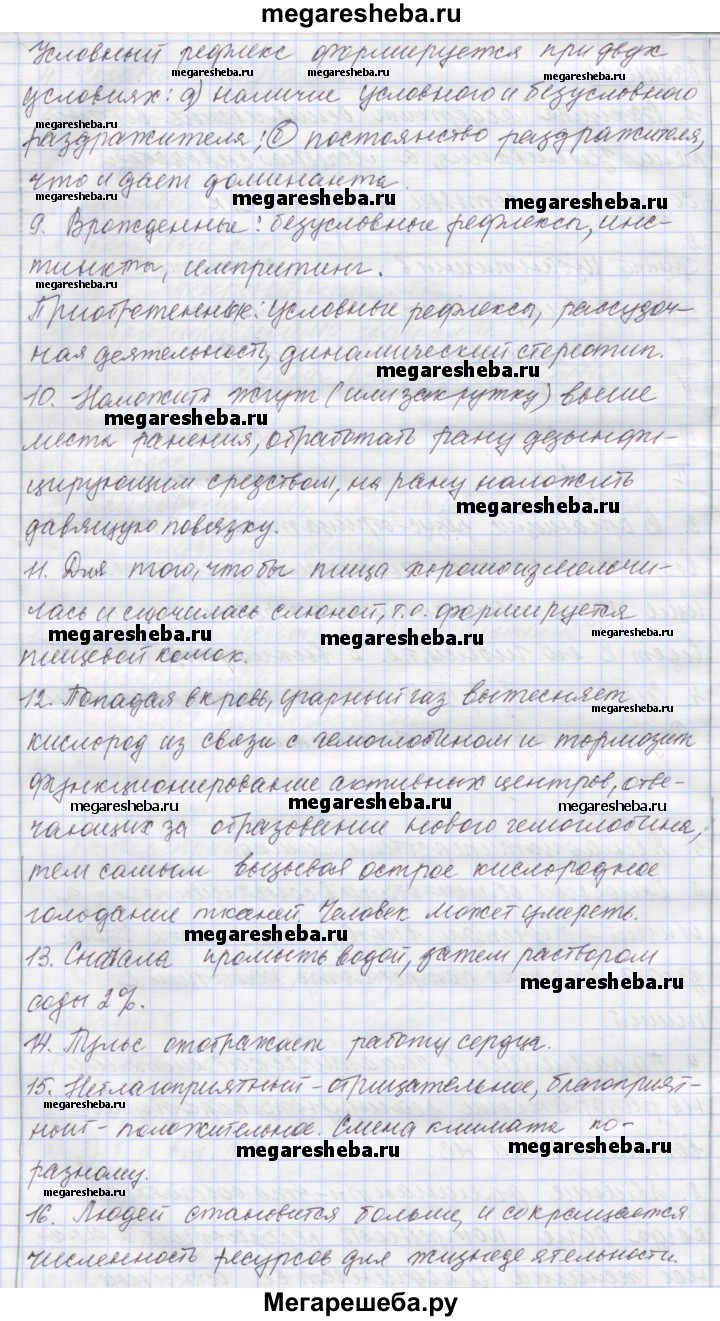 megaresheba.ru
Условный рефлекс формируется при двух
megaresheba.ru megaresheba.ru megaresheba.ru
условиях: а) наличие условного и безусловного
раздражителя; б) постоянство раздражителя,
megaresheba.ru megaresheba.ru
что и дает доминанта.
megaresheba.ru megaresheba.ru megaresheba.ru
9. Врожденные: безусловные рефлексы, инс-
тинкты, импритинг.
megaresheba.ru
Приобретенные: условные рефлексы, рассудоч-
ная деятельность, динамический стереотип.
megaresheba.ru
10. Наложить жгут (или закрутку) выше
megaresheba.ru
места ранения, обработать рану дезинфи-
цирующим средством, на рану наложить
megaresheba.ru
давящую повязку.
11. Для того, чтобы пища хорошо измельчи-
лась и смочилась слюной, т.о. формируется
megaresheba.ru megaresheba.ru megaresheba.ru
пищевой комок.
12. Попадая в кровь, угарный газ вытесняет
megaresheba.ru
кислород из связи с гемоглобином и тормозит
функционирование активных центров, отве-
megaresheba.ru megaresheba.ru megaresheba.ru
чающих за образовании нового гемоглобина,
тем самым вызывая острое кислородное
голодание тканей. Человек может умереть.
megaresheba.ru
13. Сначала промыть водой, затем раствором
megaresheba.ru
соды 2%.
14. Пульс отображает работу сердца.
15. Неблагоприятный - отрицательное, благоприят-
megaresheba.ru
ный - положительное. Смена климата по-
megaresheba.ru megaresheba.ru
разному.
megaresheba.ru
16. Людей становится больше, и сокращается
численность ресурсов для жизнедеятельности.
Мегарешеба.ру